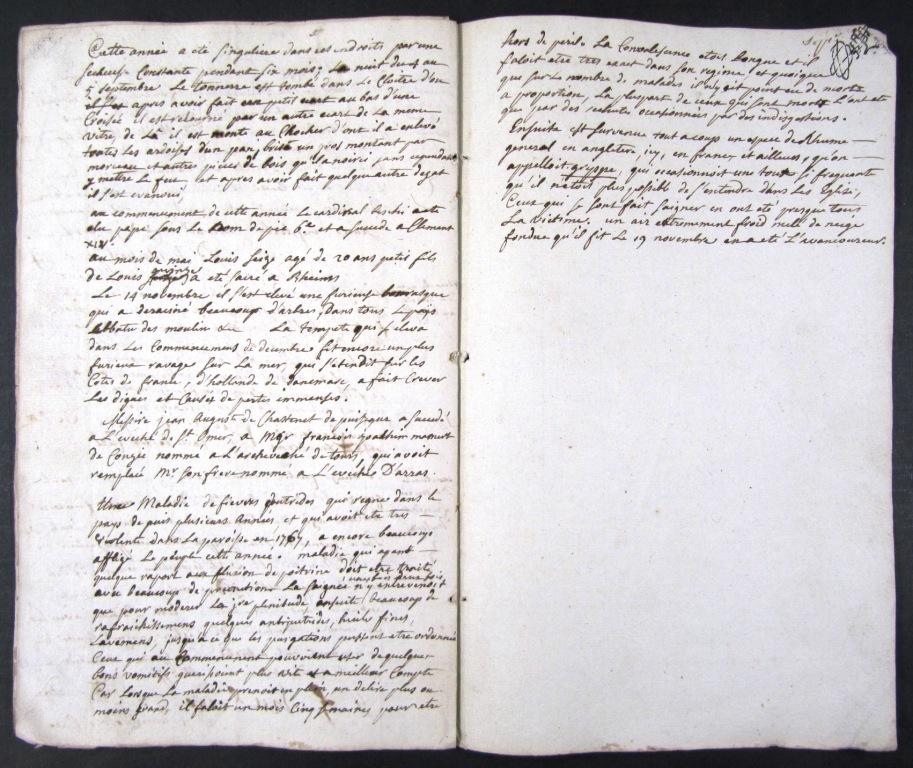 Cette année a eté singuliere dans ces endroits par une
secheresse Constante pendant six mois; La nuit du 4 au
5 septembre Le tonnerre est tombé dans Le Cloitre d'ou
il s'est apres avoir fait un petit ecart au bas d'une
Croisée il est retourné par un autre ecart de La meme
vitre, de La il est monté au Clocher d'ont il a enlevé
toutes Les ardoises d'un pan, brisé un gros montant par
morceau et autres pieces de bois qu'il a noirci sans cependant
y metre Le feu et apres avoir fait quelque autre degat
il s'est evanoui
au commencement de cette année Le cardinal Braschi a eté
élu pape sous Le nom de pie 6.e et a succedé a Clement
XIV.
au mois de mai Louis Seize agé de 20 ans petit fils
de Louis quinze a eté sacré a Rheims
Le 14 novembre il s'est elevé une furieuse bourasque
qui a deraciné beaucoup d'arbres, dans tous Le païs
abbatu des moulin &c La tempete qui s'eleva
dans Les Commencement de decembre fit encore un plus
furieux ravage sur La mer, qui s'etendit sur les
Côtes de france, d'hollande de danemarc, a fait Crever
Les digues et Causés de pertes immenses.
Messire jean Auguste de Chastenet de puisegur a succedé
a L'eveché de St Omer, a Mgr francois joachim mamert
de Conzié nommé a L'archeveché de tours, qui avoit
remplacé Mr son frere nommé a L'eveché D'arras.
Une Maladie de fievres putrides qui regne dans le
pays de puis plusieurs Années et qui avoit eté tres
violente dans La paroisse en 1767, a encore beaucoup
affligé Le peuple cette année. maladie qui ayant
quelque raport aux flusion de poitrine doit etre traité
avec beaucoup de precautions La Saignée n'y entre venoit
une ou deux fois
que pour moderer La 1re plenitude ensuite beaucoup de
rafraichissemens quelques antiputrides, huile fines,
Lavemens, jusqu'a ce que les purgations pussent etre ordonnée
Ceux qui au Commencement pouvoient user de quelque
bons vomitifs guerissoient plus vite et a meilleur Compte
Car Lorsque La maladie prenoit en plein, un delire plus ou
moins grand, il faloit un mois Cinq semaines pour etre
hors de peril. La Convalescence etoit Longue et il
faloit etre tres exact dans son regime, et quoique
que sur Le nombre de malades il n'y ait point eu de morts
a proportion. La plupart de ceux qui sont morts L'ont eté
que par des rechutes occasionnées par des indigestions.
Ensuite est survenue tout a coup un espece de Rhume
general en angletere, icy, en france et ailleurs, qu'on
appelloit grippe, qui occasionnoit une toux si frequente
qu'il n'etoit plus possible de s'entendre dans Les Eglises,
Ceux qui se sont fait saigner en ont eté presque tous
La victime, un air extremement froid melé de neige
fondue qu'il fit Le 19 novembre en a eté L'avancoureur.